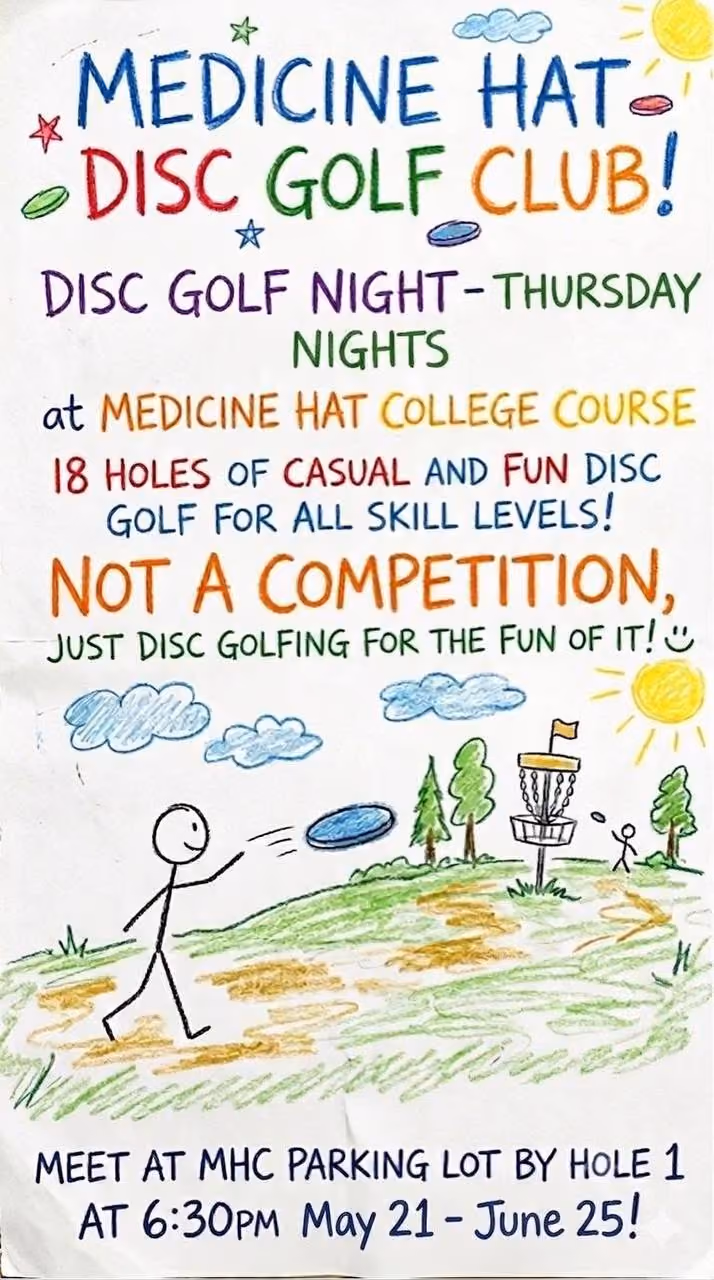 MEDICINE HAT
DISC GOLF CLUB!
DISC GOLF NIGHT - THURSDAY
NIGHTS
at MEDICINE HAT COLLEGE COURSE
18 HOLES OF CASUAL AND FUN DISC
GOLF FOR ALL SKILL LEVELS!
NOT A COMPETITION,
JUST DISC GOLFING FOR THE FUN OF IT!
MEET AT MHC PARKING LOT BY HOLE 1
AT 6:30PM May 21 - June 25!